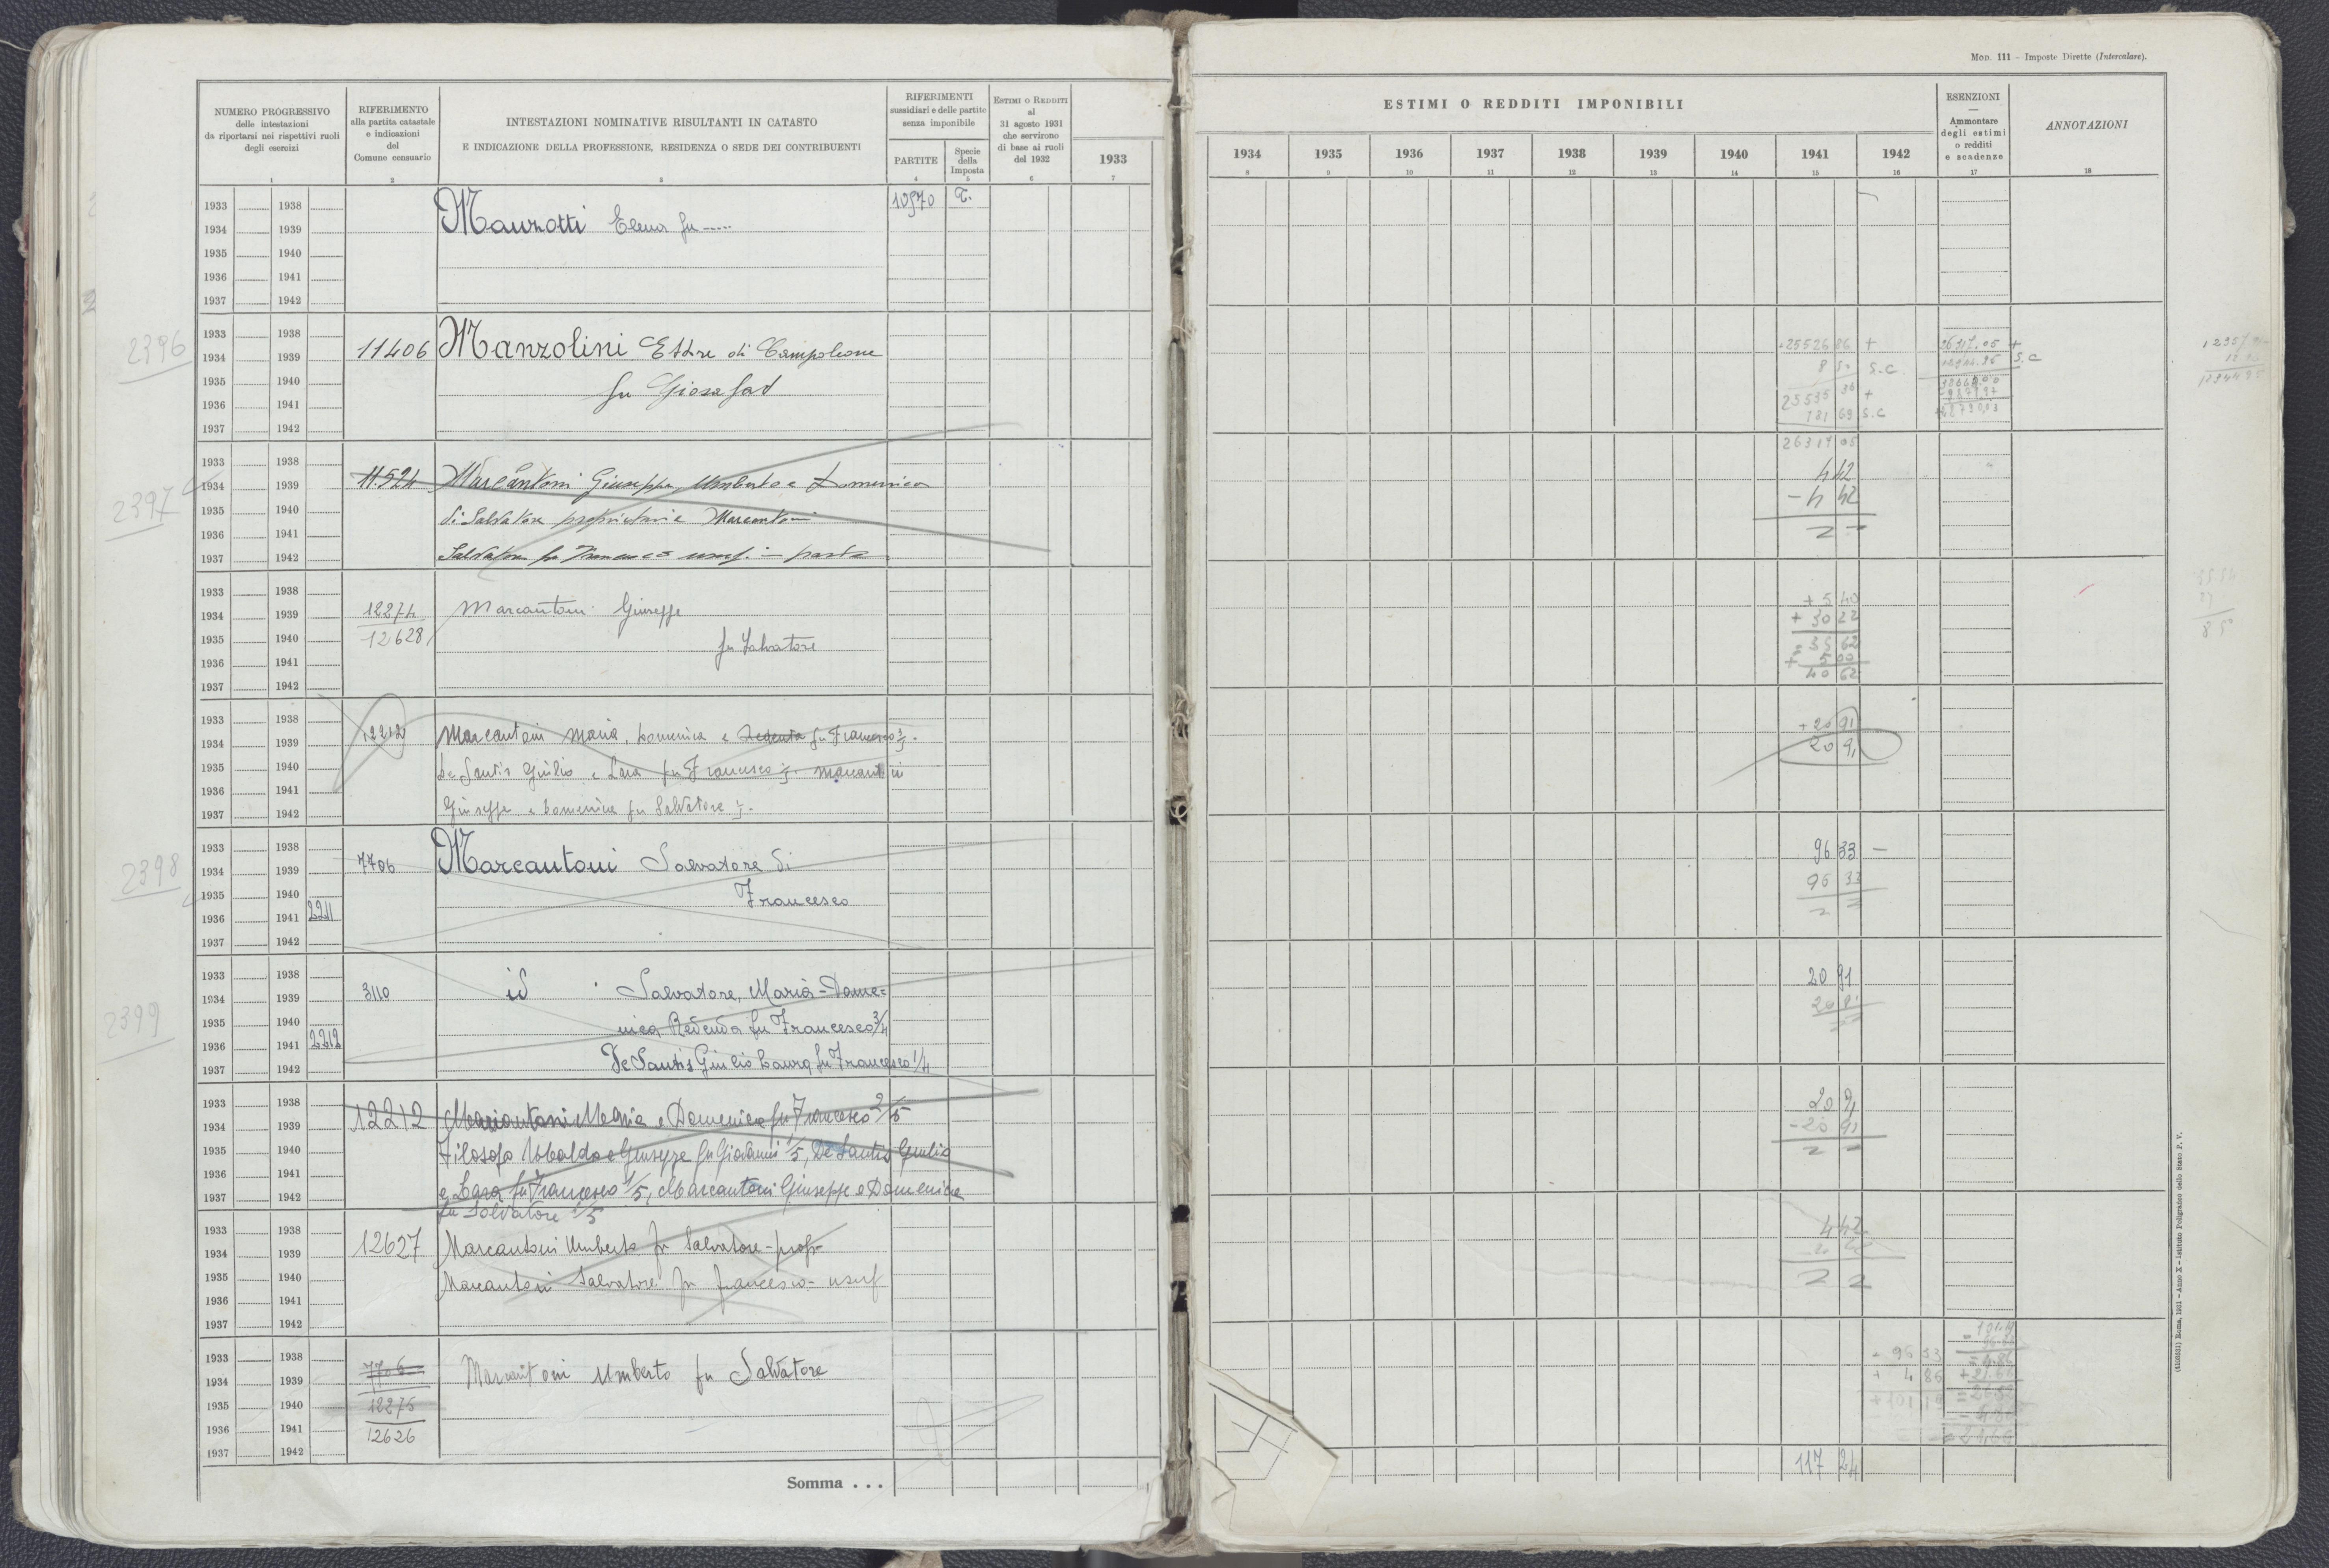 Mod. 111 – Imposte Dirette (Intercalare).
NUMERO PROGRESSIVO
delle intestazioni
da riportarsi nei rispettivi ruoli
degli esercizi
1
RIFERIMENTO
alla partita catastale
e indicazioni
del
Comune censuario
2
INTESTAZIONI NOMINATIVE RISULTANTI IN CATASTO
E INDICAZIONE DELLA PROFESSIONE, RESIDENZA O SEDE DEI CONTRIBUENTI
3
RIFERIMENTI
sussidiari e delle partite
senza imponibile
PARTITE
4
Specie
della
Imposta
5
Estimi o Redditi
al
31 agosto 1931
che servirono
di base ai ruoli
del 1932
6
1933
7
ESTIMI O REDDITI IMPONIBILI
1934 1935 1936 1937 1938 1939 1940 1941 1942
8 9 10 11 12 13 14 15 16
ESENZIONI
—
Ammontare
degli estimi
o redditi
e scadenze
17
ANNOTAZIONI
18
1933 1938
1934 1939
1935 1940
1936 1941
1937 1942
Elena fu -----
T.
1933 1938
1934 1939
1935 1940
1936 1941
1937 1942
2396
11406 Manzolini Ettore di Campoleone
fu Giosafat
25526 86 +
S.C.
25535 36 +
181 69 S.C
26317 05
26317.05 +
S.C
1933 1938
1934 1939
1935 1940
1936 1941
1937 1942
2397
11.524 Marcantoni Giuseppe Umberto e Domenica
di Salvatore proprietari e Marcantoni
Salvatore fu Francesco usuf. in parte
4 42
- 4 42
1933 1938
1934 1939
1935 1940
1936 1941
1937 1942
12274 Marcantoni Giuseppe
12628 fu Salvatore
+ 5 40
+ 30 22
= 35 62
+ 5 00
40 62
8 50
1933 1938
1934 1939
1935 1940
1936 1941
1937 1942
12212 Marcantoni Maria, Domenica e Redenta fu Francesco
De Santis Giulio e Lara fu Francesco Marcantoni
Giuseppe e Domenica fu Salvatore
+ 20 91
20 91
1933 1938
1934 1939
1935 1940
1936 1941 2211
1937 1942
2398
7706 Marcantoni Salvatore di
Francesco
96 33 –
96 33
1933 1938
1934 1939
1935 1940
1936 1941 2212
1937 1942
2399
3110 id Salvatore, Maria-Dome=
nica, Redenda fu Francesco 3/4
De Santis Giulio Laura fu Francesco 1/4
20 91
20 91
1933 1938
1934 1939
1935 1940
1936 1941
1937 1942
12212 Marcantoni Maria e Domenica fu Francesco 2/5
Filosofo Ubaldo e Giuseppe fu Giovanni 1/5, De Santis Giulio
e Lara fu Francesco 1/5, Marcantoni Giuseppe e Domenica
fu Salvatore 1/5
20 91
- 20 91
1933 1938
1934 1939
1935 1940
1936 1941
1937 1942
12627 Marcantoni Umberto fu Salvatore - prop-
Marcantoni Salvatore fu Francesco - usuf
4 42
1933 1938
1934 1939
1935 1940
1936 1941
1937 1942
7706 Marcantoni Umberto fu Salvatore
12275
12626
96 33
+ 4 86
+ 101 19
117 24
Somma . . .
(4103531) Roma, 1931 - Anno X - Istituto Poligrafico dello Stato P. V.